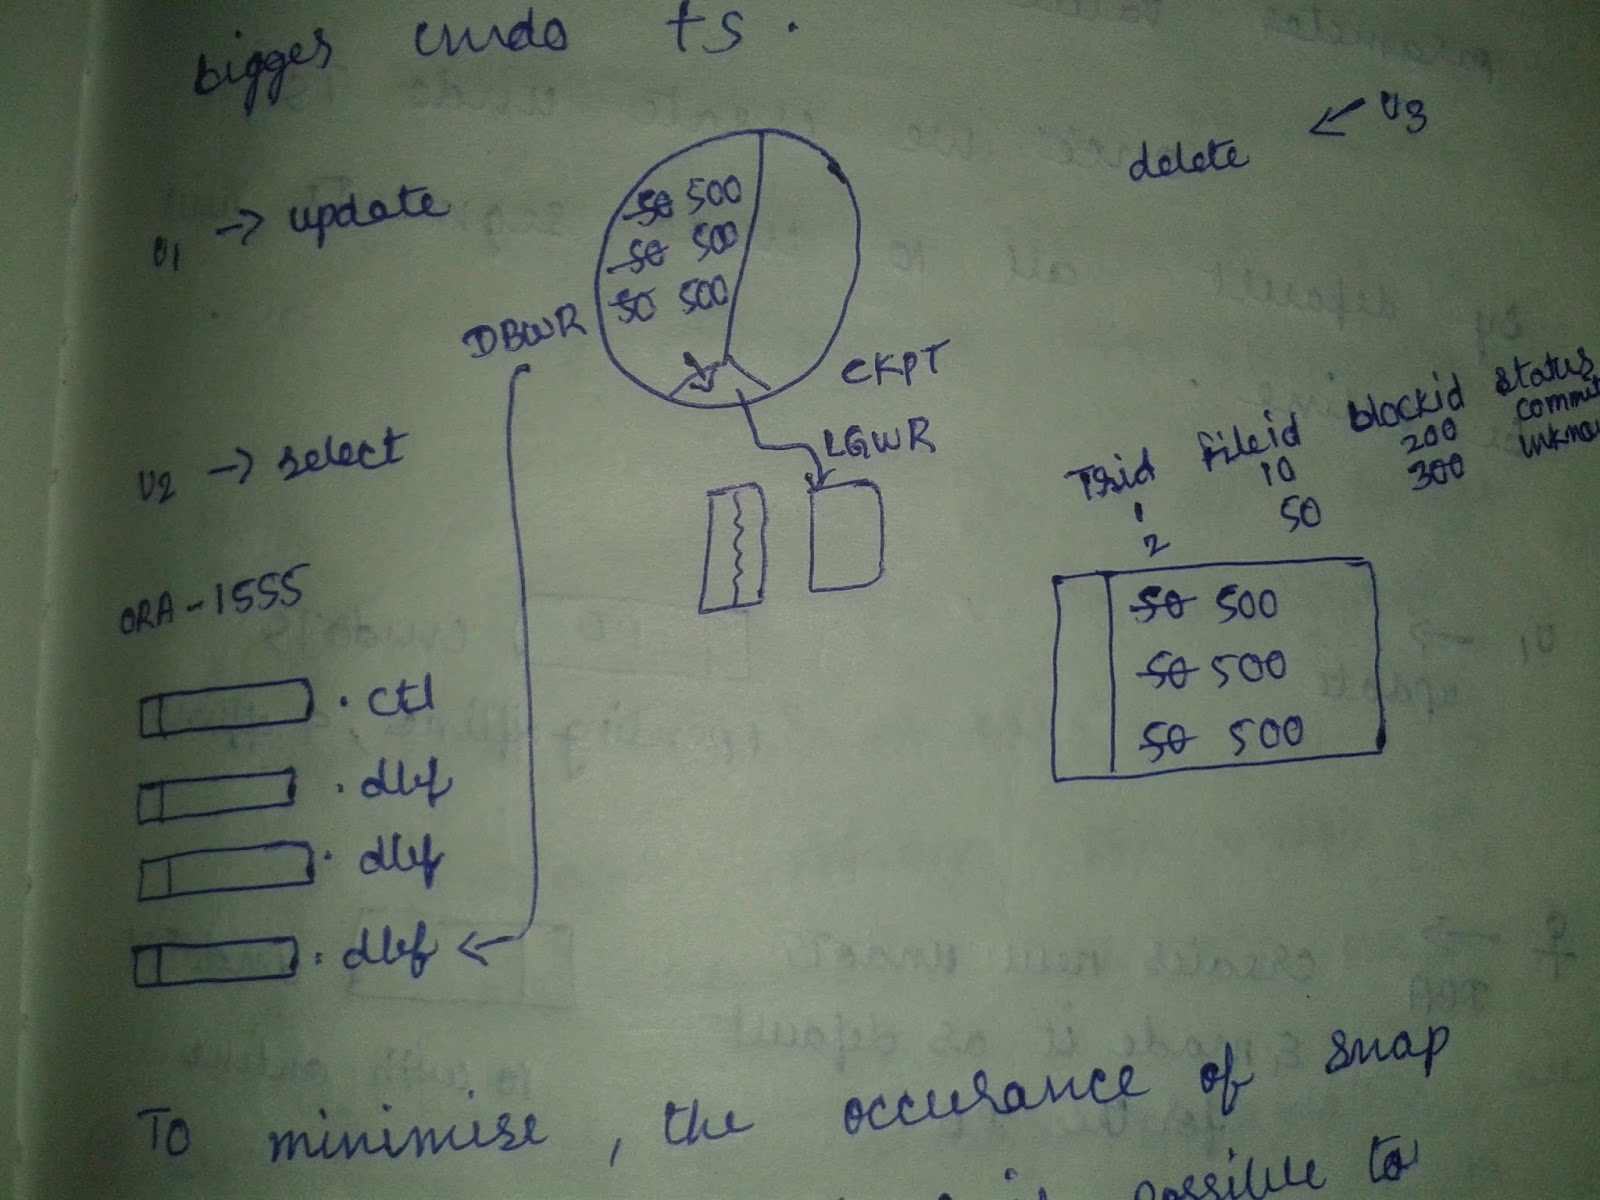 bigger undo ts.
U3
delete
U1 → update
50 500
50 500
50 500
DBWR
CKPT
LGWR
U2 → select
Tsid fileid blockid status
1 10 200 commit
2 50 300
50 500
50 500
50 500
ORA-1555
.ctl
.dbf
.dbf
.dbf
To minimise, the occurance of snap
is possible to